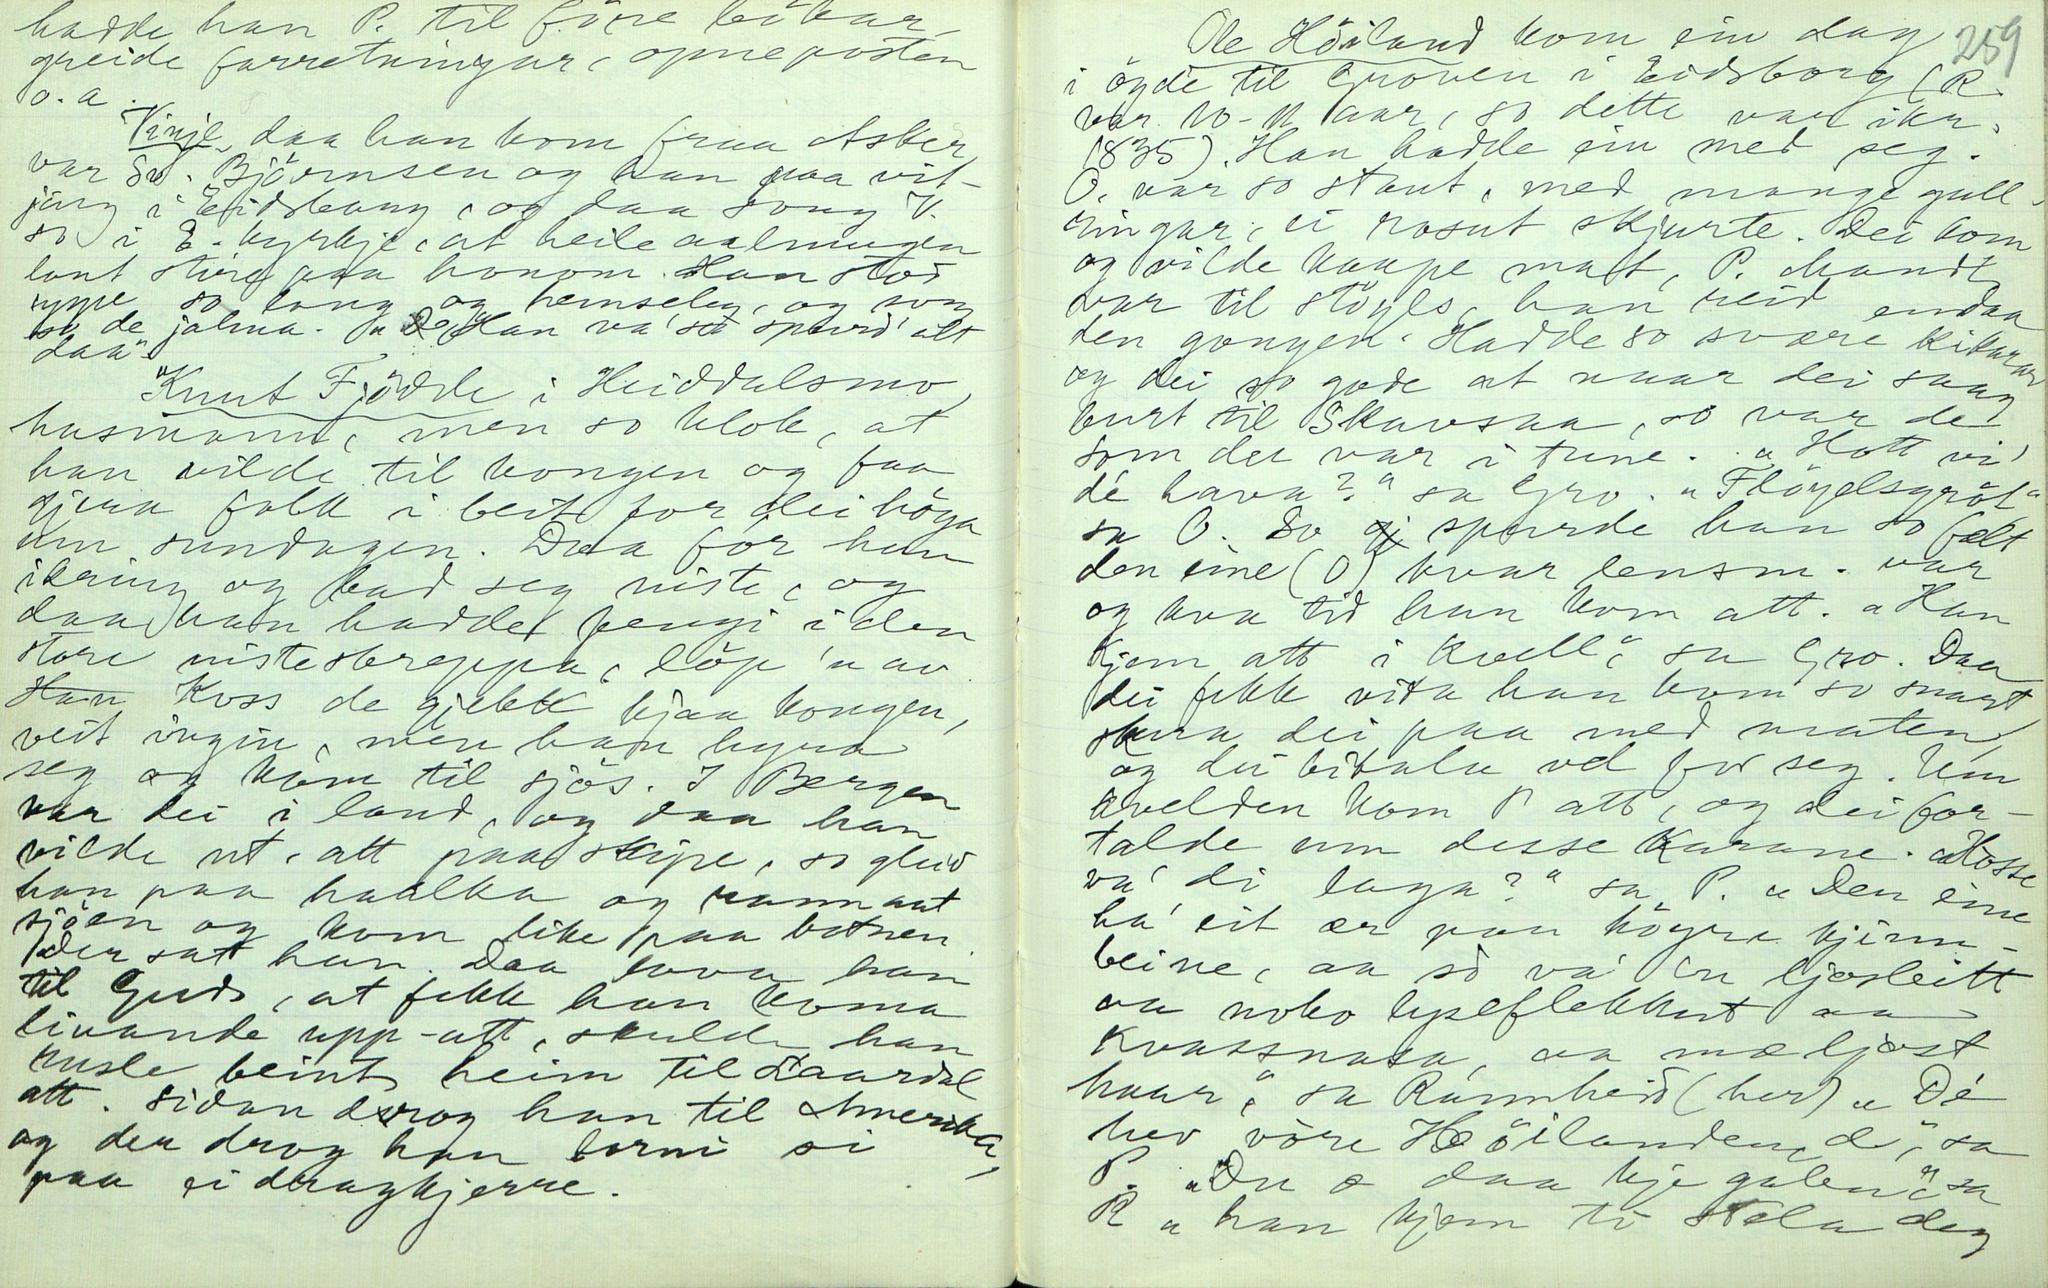 hadde han P. til före bökar,
greide forretningar, opne posten
o. a.
Vinje, daa han kom fraa Asker,
var Sv. Björnsen og han paa vit-
jing i Eidsborg, og daa song V.
so i E. kyrkje, at heile aalmugen
laut stire paa honom. Han stod
uppe so long og hemseleg, og song
so de jalma. "Han va' so spurd' alt
daa".
"Knut Fjödde i Heiddalsmo,
husmann, men so klok, at
han vilde til kongen og faa
gjera folk i beit for dei höga
um sundagen. Daa för han
ikring og bad seg niste, og
daa han hadde fengi i den
store nisteskreppa, löp 'n av
Han Koss de gjekk hjaa kongen,
veit ingin, men han hyra
seg og kom til sjös. I Bergen
var dei i land, og daa han
vilde ut att paa skipe, so gleid
han paa haalka og rann ut
sjöen og kom like paa botnen.
Der sat han. Daa lova han
til Gud, at fekk han koma
livande upp-att, skulde han
rusle beint heim til Laardal
att. Sidan drog han til Amerika,
og der drog han borni si
paa ei dragkjerre.
259
Ole Höiland kom ein dag
i ögde til Groven i Eidsborg (R.
var 10-11 aar, so dette var ikr.
1835). Han hadde ein med seg.
O. var so staut, med mange gull-
ringar, ei rosut skjurte. Dei kom
og vilde kaupe mat, P. Mandt
var til stöyls, han reid endaa
den gongen. Hadde so svære kikarar
og dei so gode at naar dei saag
burt til Skavsaa, so var de
som dei var i tune. "Hott vi'
dé hava?" sa Gro. "Flöyelsgröt"
sa O. So spurde han so fælt
den eine (O) kvar lensm. var
og kva tid han kom att. "Han
kjem att i kvell", sa Gro. Daa
dei fekk vita han kom so snart
skua dei paa med maten,
og dei bitala vel for seg. Um
kvelden kom P att, og dei for-
talde um desse karane. "Kosse
va' di laga?" sa P. "Den eine
ha' eit ær paa högre kjinn-
beine, aa so va' 'n ljosleitt
aa noko lyseflekkut aa
kvassnasa, aa mæ ljost
haar," sa Rannheid (her) "Dé
hev vöre Höilanden, dé", sa
P. "Du æ daa kje galen", sa
R "han kjem ti stela deg